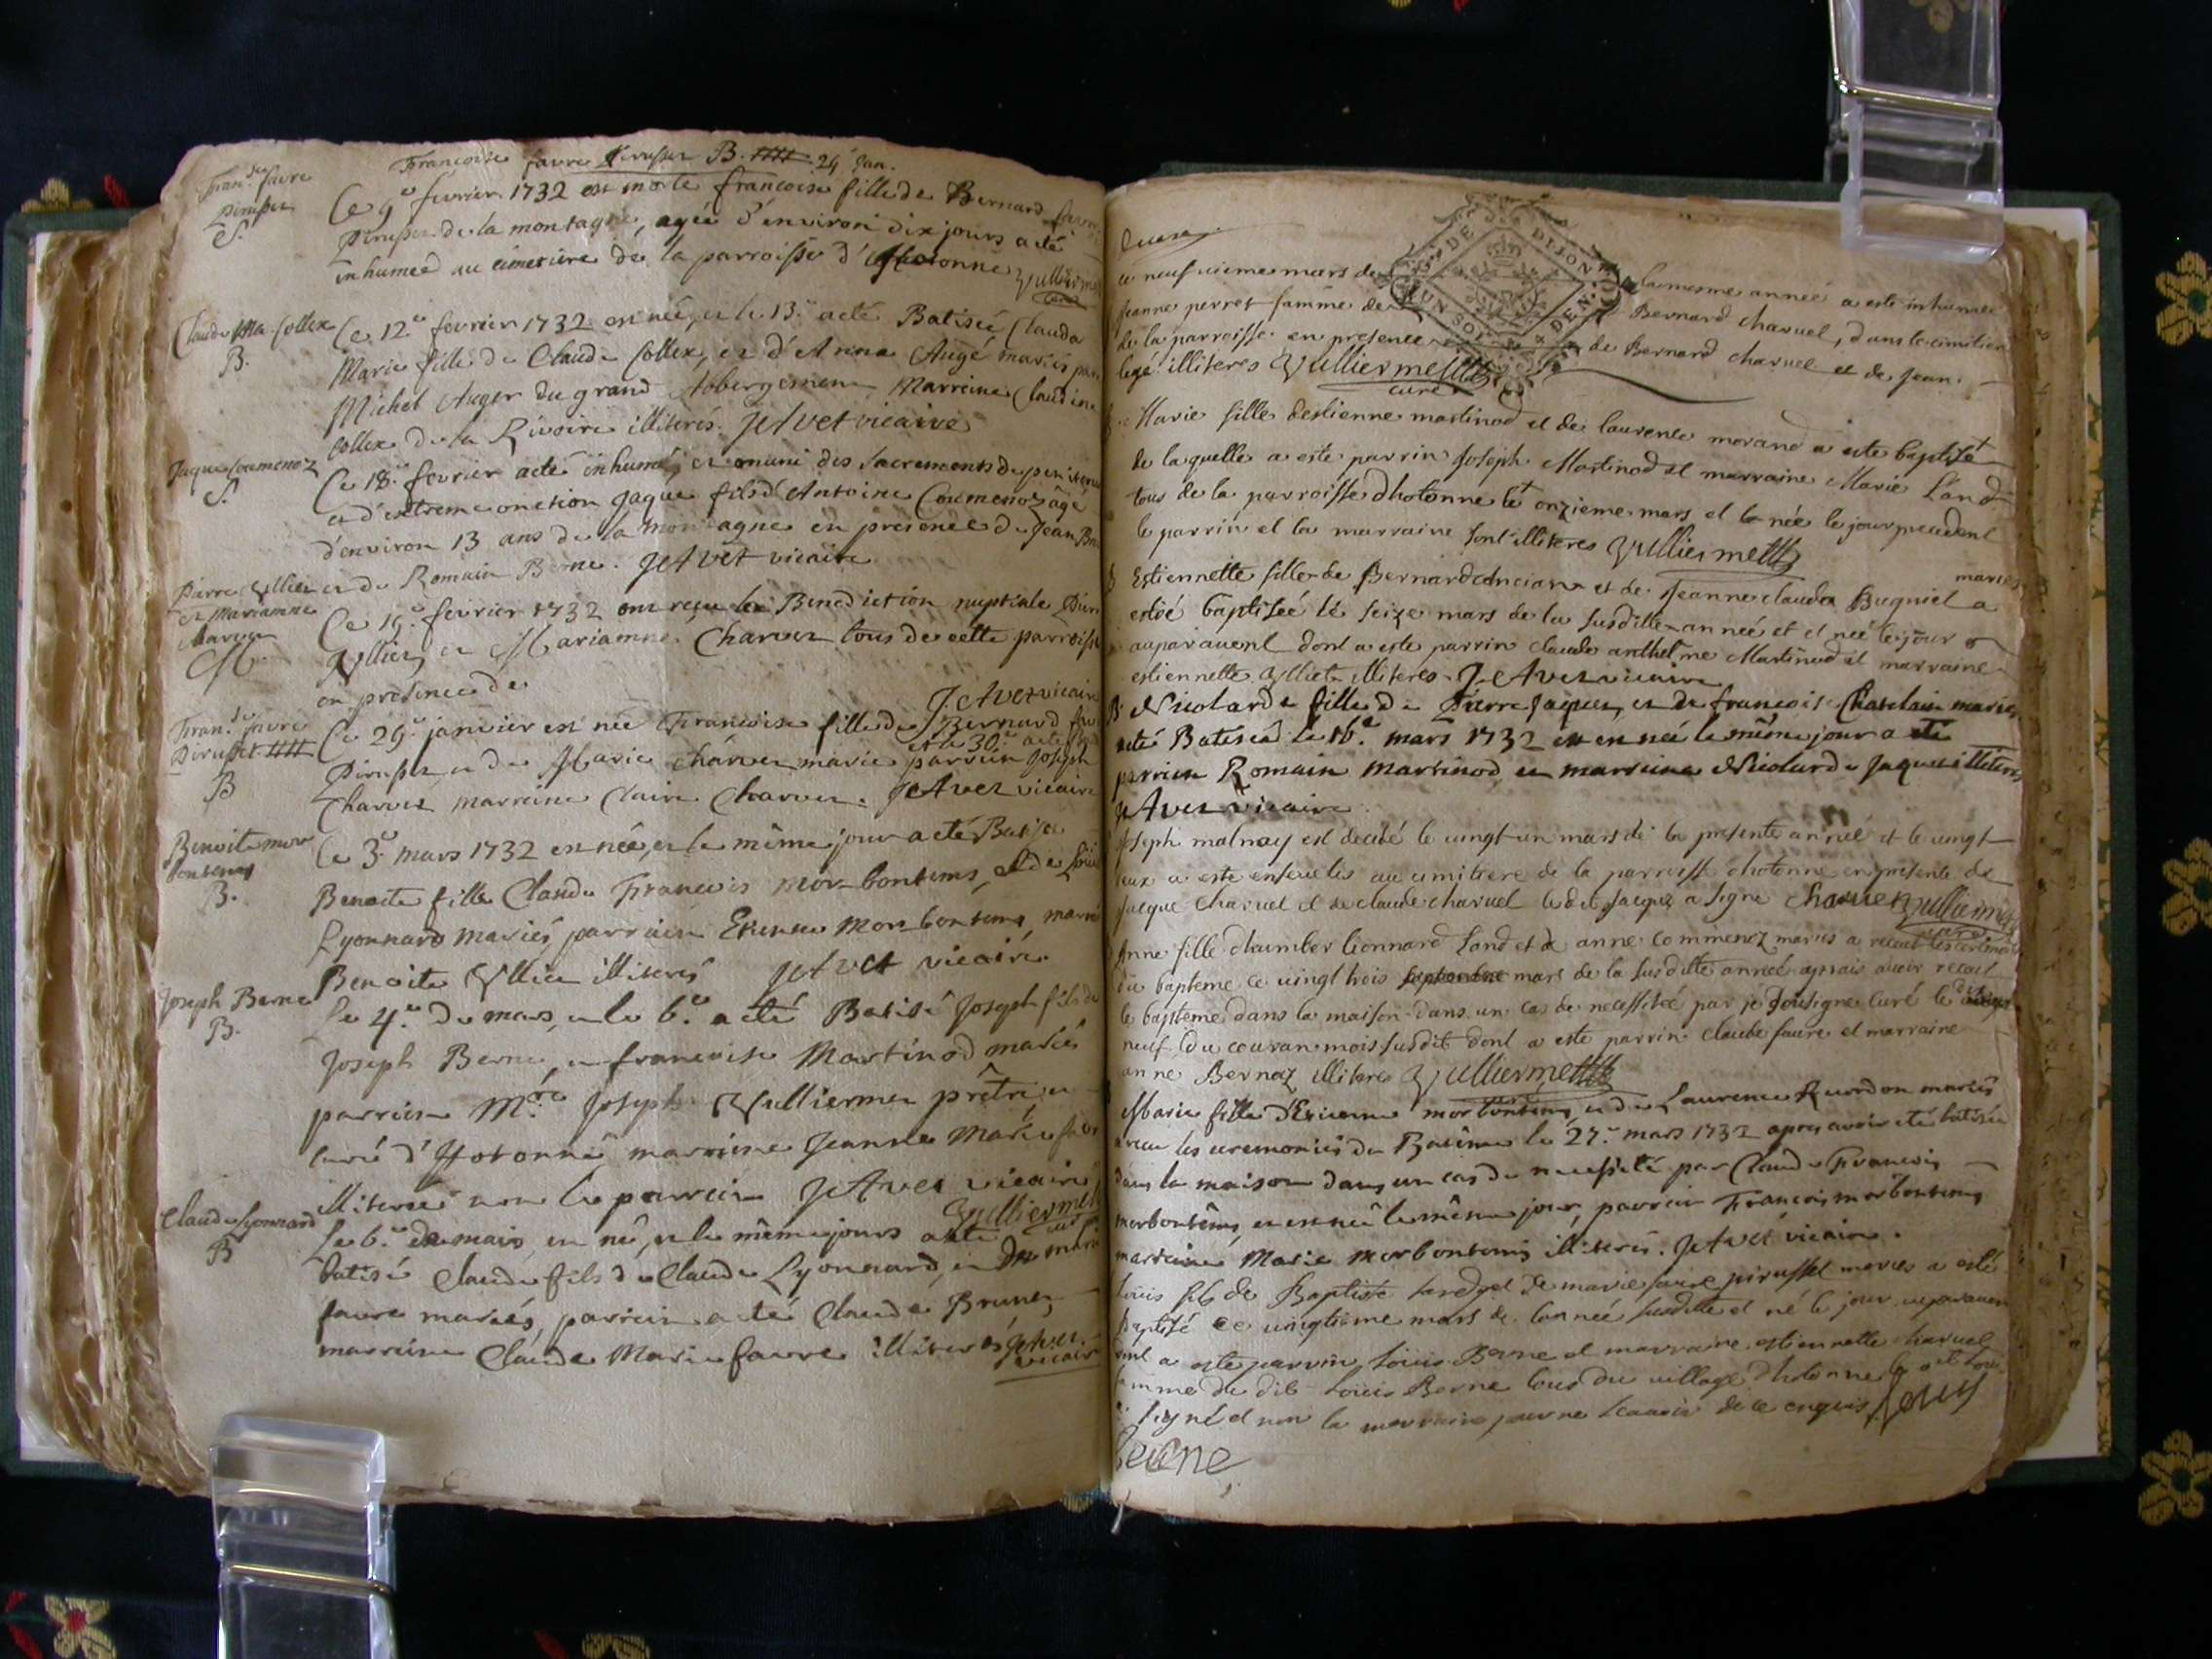 Françoise favre Pirusset B. 29 Jan.
Fran.se favre
Pirusset
S.
Ce 9e fevrier 1732 est morte françoise fille de Bernard favre
Pirusset de la montagne, agée d'environ dix jours a eté
inhumeé au cimetiere de la parroisse d'Hotonne Vulliermet
curé
Claude Ma. Collex
B.
Ce 12e fevrier 1732 est née, et le 13e a eté Batisée Clauda
Marie fille de Claude Collex, et d'Anna Augé mariés par.
Michel Auger du grand Abbergement Marreine Claudine
Collex de la Rivoire illiterés. JAvet vicaire
Jaque Coumenoz
S.
Ce 18e fevrier a eté inhumé, et muni des Sacrements de penitence
et d'extreme onction Jaque fils d'Antoine Coumenoz âgé
d'environ 13 ans de la montagne en presence de Jean Ber
et de Romain Berne. JAvet vicaire
Pierre Ylliet
et Mariamne
Charvet
M.
Ce 19e fevrier 1732 ont reçu la Benediction nuptiale Pierre
Yllier, et Mariamne Charvet tous de cette parroisse
en presence de
JAvet vicaire
Fran.se favre
Pirusset
B
Ce 29e janvier est née Françoise fille de Bernard fav
et le 30e a eté
Pirusset et de Marie Charvet mariés parrein Joseph
Charvet marreine Claire Charvet. JAvet vicaire
Benoite mor
bontems
B.
Ce 3e mars 1732 est née, et le même jour a eté Batisée
Benoite fille Claude François morbontems, et de
Lyonnard mariés, parrein Etienne Morbontems, marre
Benoite Yllier illiterés JAvet vicaire.
Joseph Berne
B.
Le 4e de mars, et le 6e a eté Batisé Joseph fils de
Joseph Berne, et françoise Martinod mariés
parrein Mre Joseph Vulliermet prêtre et
curé d'Hotonne marreine Jeanne Marie favr
illiterée non le parrein JAvet vicaire
Vulliermet
curé
Claude Lyonnard
B
Le 6e de mars, est né, et le même jours a eté
batisé Claude fils de Claude Lyonnard, et de marie
favre mariés, parrein a eté Claude Brunet,
marreine Claude Marie favre illiterés JAvet
vicaire
ce neufvieme mars de la mesme anneé a esté inhumeé
Jeanne perret famme de Bernard charvet, dans le cimitiere
de la parroisse en presence de Bernard charvet et de Jean
legé illitéres Vulliermet
curé
DE DIJON
UN SOL 4 DEN.
Marie fille destienne martinod et de laurence morand a esté baptiseé
de laquelle a esté parrin Joseph Martinod et marraine Marie Land
tous de la parroisse dhotonne le onzieme mars et née le jour precedent
le parrin et la marraine sont illiteres Vulliermet
Estiennette fille de Bernard et de Jeanne clauda Buquiet mariés a
estéé baptiseé le seize mars de la susditte anneé et et neé le jour
auparavent dont a esté parrin claude anthelme Martinod et marraine
estiennette Ylliet illiteres. JAvet vicaire
B Nicolarde fille de Pierre Jaquet, et de françoise Chatelain mariés
a eté Batiseé le 16e mars 1732 et est née le même jour a eté
parrein Romain Martinod et marreine Nicolarde Jaquet illiterés
JAvet vicaire.
Joseph malnoy est decédé le vingt un mars de la presente anneé et le vingt
deux a esté ensevelis au cimitiere de la parroisse dhotonne en presence de
Jacque charvet et de claude charvet le dit Jacque a signe Charvet Vulliermet
Anne fille dhumber lionnard Land et de anne Commenoz mariés a receut les ceremonies
du bapteme ce vingt trois mars de la susditte anneé aprais avoir receut
le bapteme dans la maison dans un cas de necessitée par je sousigne curé le dix
neuf du couran mois susdit dont a esté parrin claude favre et marraine
anne Bernoz illiteres Vulliermet
Marie fille d'Etienne morbontems, et de Laurence Ruerdon mariés
a reçu les ceremonies du Batême le 27e mars 1732 apres avoir eté batisée
dans la maison dans un cas de necessité par Claude François
morbontems, et est née le même jour, parrein François morbontems
marreine Marie Morbontems illiterés. JAvet vicaire.
Louis fils de Baptiste et de marie favre pirusset mariés a esté
baptisé ce vingtieme mars de lanneé susditte et né le jour auparavent
dont a esté parrin Louis Berne et marraine estiennette charvet
famme du dit Louis Berne tous du village dhotonne
signé et non la marraine pour ne scavoir de ce enquis Louis
berne